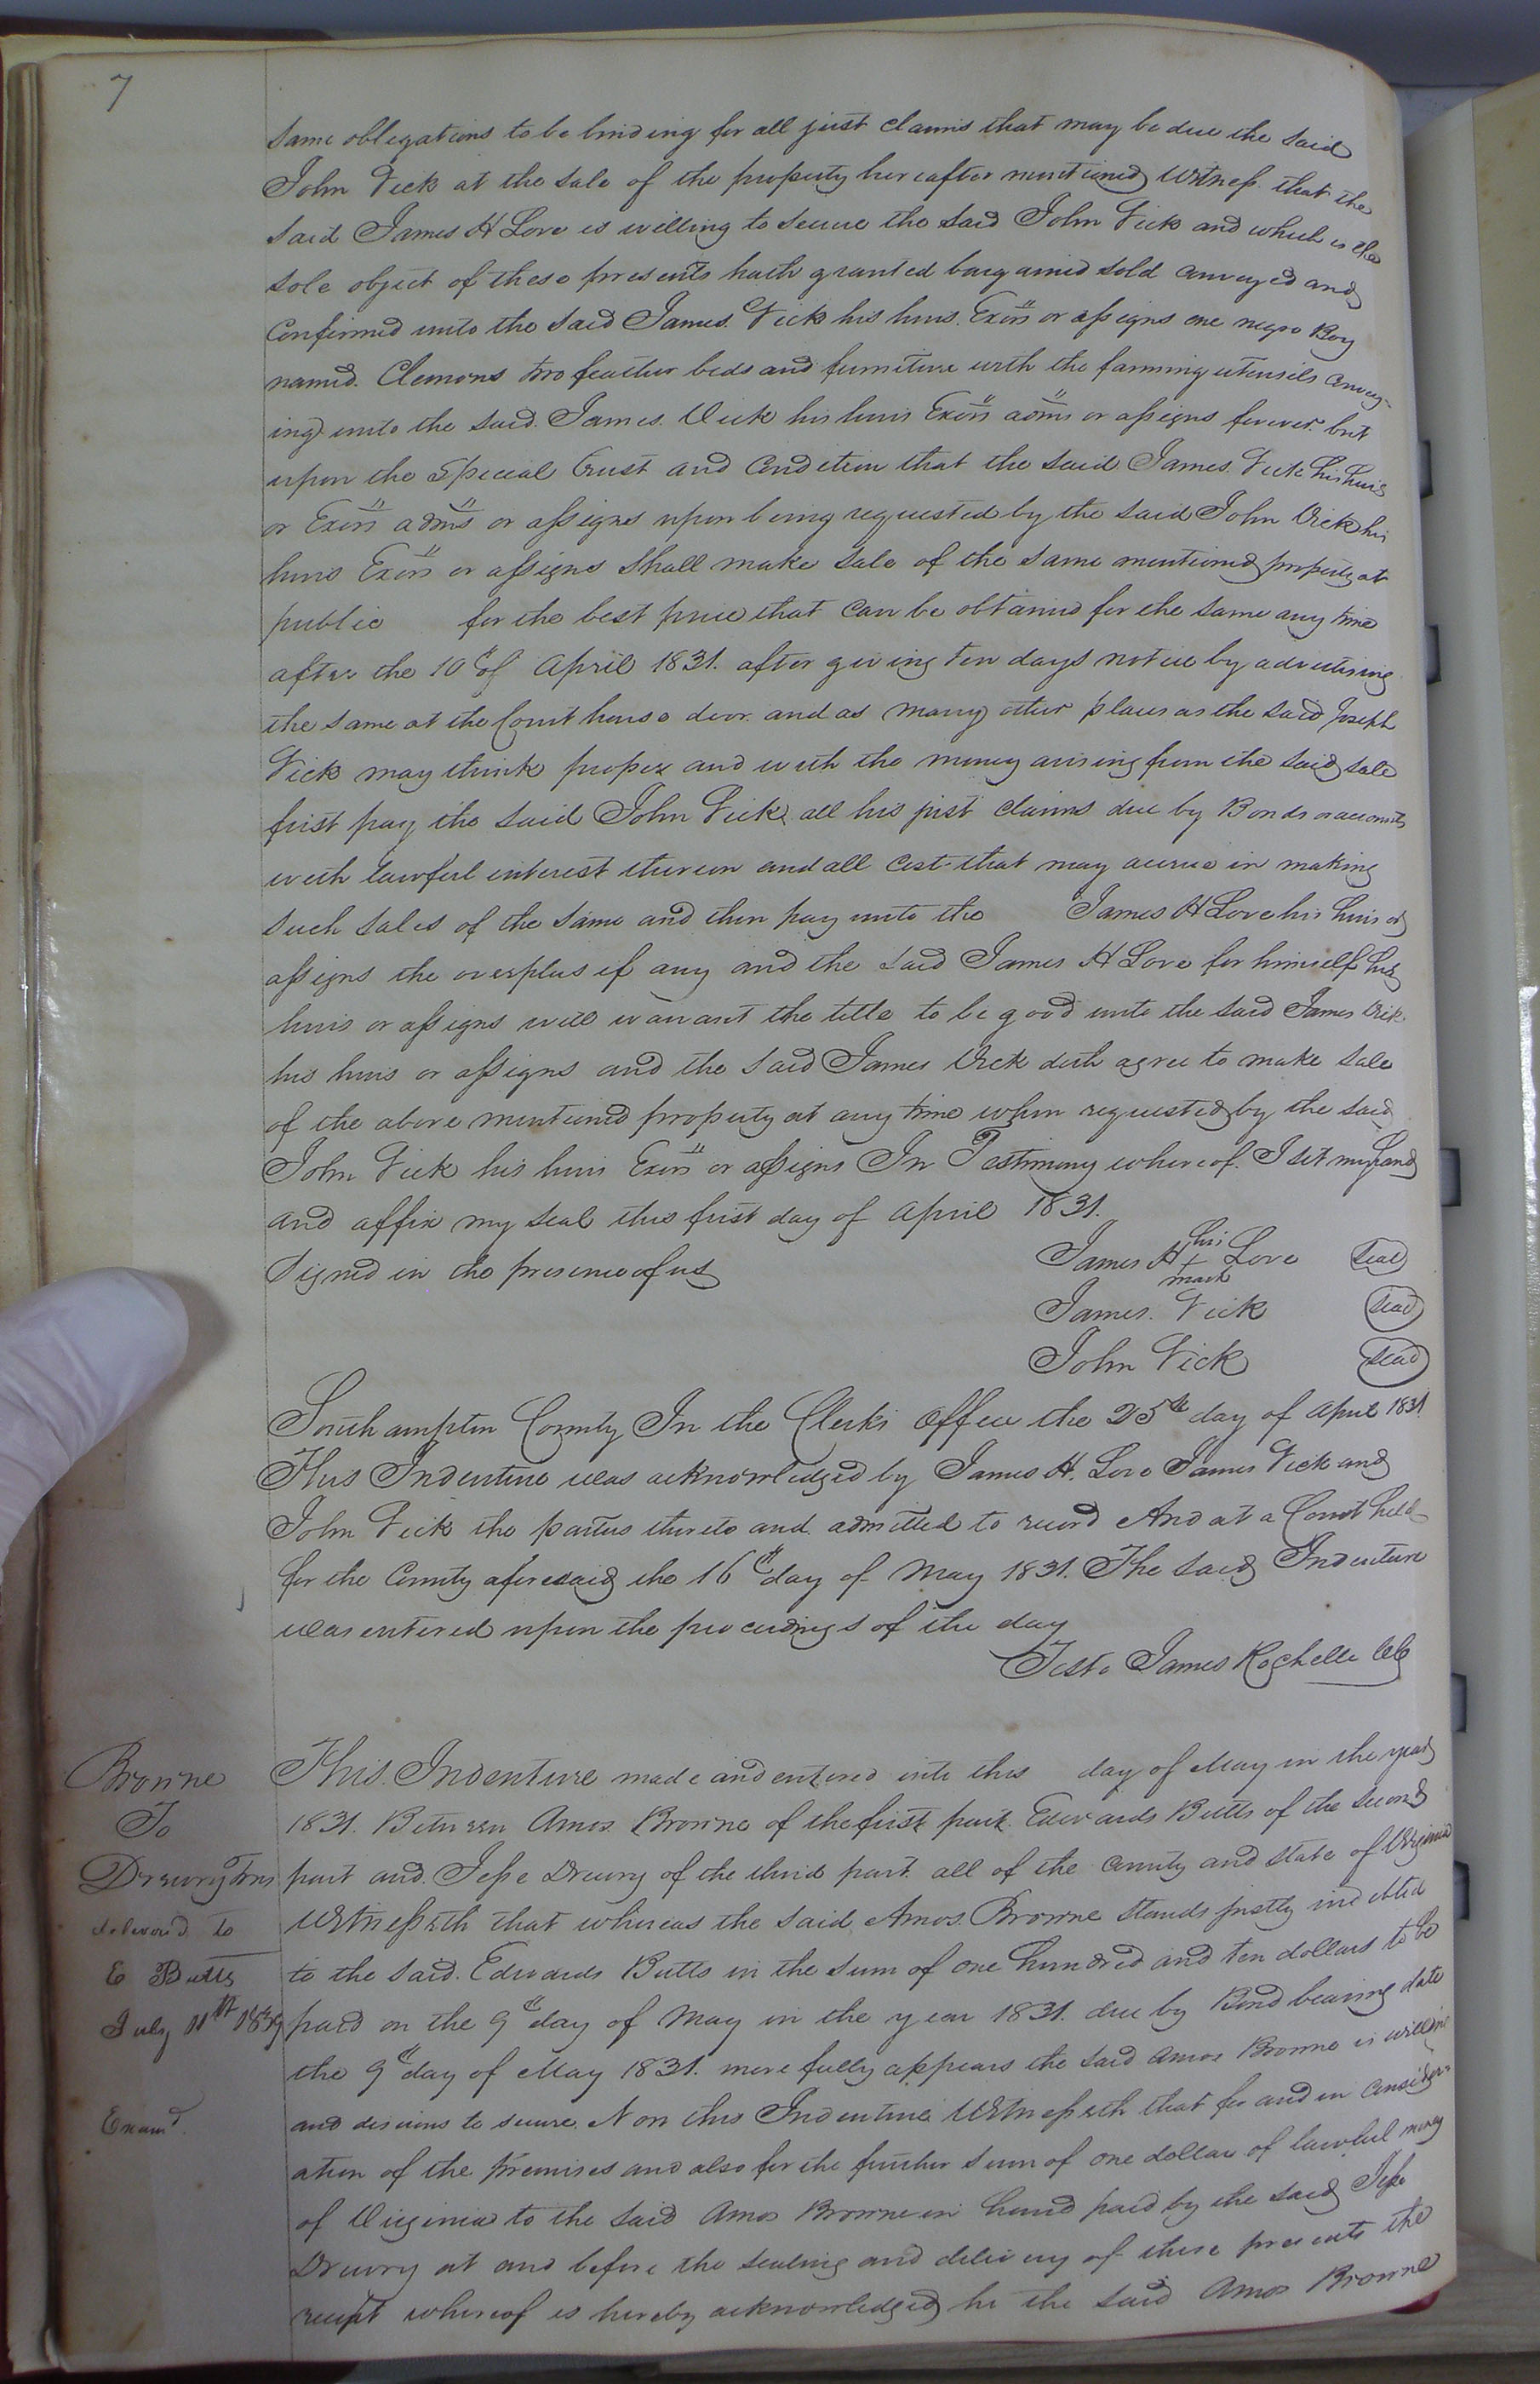 7
Same obligations to be binding for all just claims that may be due the said
John Vick at the sale of the property hereafter mentioned Witness that the
said James H Love is willing to secure the said John Vick and which is the
sole object of these presents hath granted bargained sold conveyed and
confirmed unto the said James Vick his heirs Exors or assigns one negro Boy
named Clemons two feather beds and furniture with the farming utensils convey-
ing unto the said James Vick his heirs Exors adms or assigns forever but
upon the special trust and condition that the said James Vick his heirs
or Exors adms or assigns upon being requested by the said John Vick his
heirs Exors or assigns shall make sale of the same mentioned property at
public for the best price that can be obtained for the same any time
after the 10th of April 1831. after giving ten days notice by advertising
the same at the Court house door and as many other places as the said Joseph
Vick may think proper and with the money arising from the said sale
first pay the said John Vick all his just claims due by Bonds or accounts
with lawful interest thereon and all cost that may accrue in making
such sales of the same and then pay unto the James H Love his heirs or
assigns the overplus if any and the said James H Love for himself his
heirs or assigns will warrant the title to be good unto the said James Vick
his heirs or assigns and the said James Vick doth agree to make sale
of the above mentioned property at any time when requested by the said
John Vick his heirs Exors or assigns In Testimony whereof I set my hand
and affix my seal this first day of April 1831.
Signed in the presence of us
James H his + mark Love Seal
James Vick Seal
John Vick Seal
Southampton County In the Clerks Office the 25th day of April 1831
This Indenture was acknowledged by James H. Love James Vick and
John Vick the parties thereto and admitted to record And at a Court held
for the County aforesaid the 16th day of May 1831. The said Indenture
was entered upon the proceedings of the day
Teste James Rochelle CC
Browne
To
Drewry Trus
delivered to
E Butts
July 11th 1839
Examd
This Indenture made and entered into this day of May in the year
1831. Between Amos Browne of the first part Edwards Butts of the second
part and Jesse Drewry of the third part all of the county and state of Virginia
Witnesseth that whereas the said Amos Browne stands justly indebted
to the said Edwards Butts in the sum of one hundred and ten dollars to be
paid on the 9th day of May in the year 1831. due by Bond bearing date
the 9th day of May 1831. more fully appears the said Amos Browne is willing
and desirous to secure Now this Indenture Witnesseth that for and in consider-
ation of the premises and also for the further sum of one dollar of lawful money
of Virginia to the said Amos Browne in hand paid by the said Jesse
Drewry at and before the sealing and delivery of these presents the
receipt whereof is hereby acknowledged he the said Amos Browne